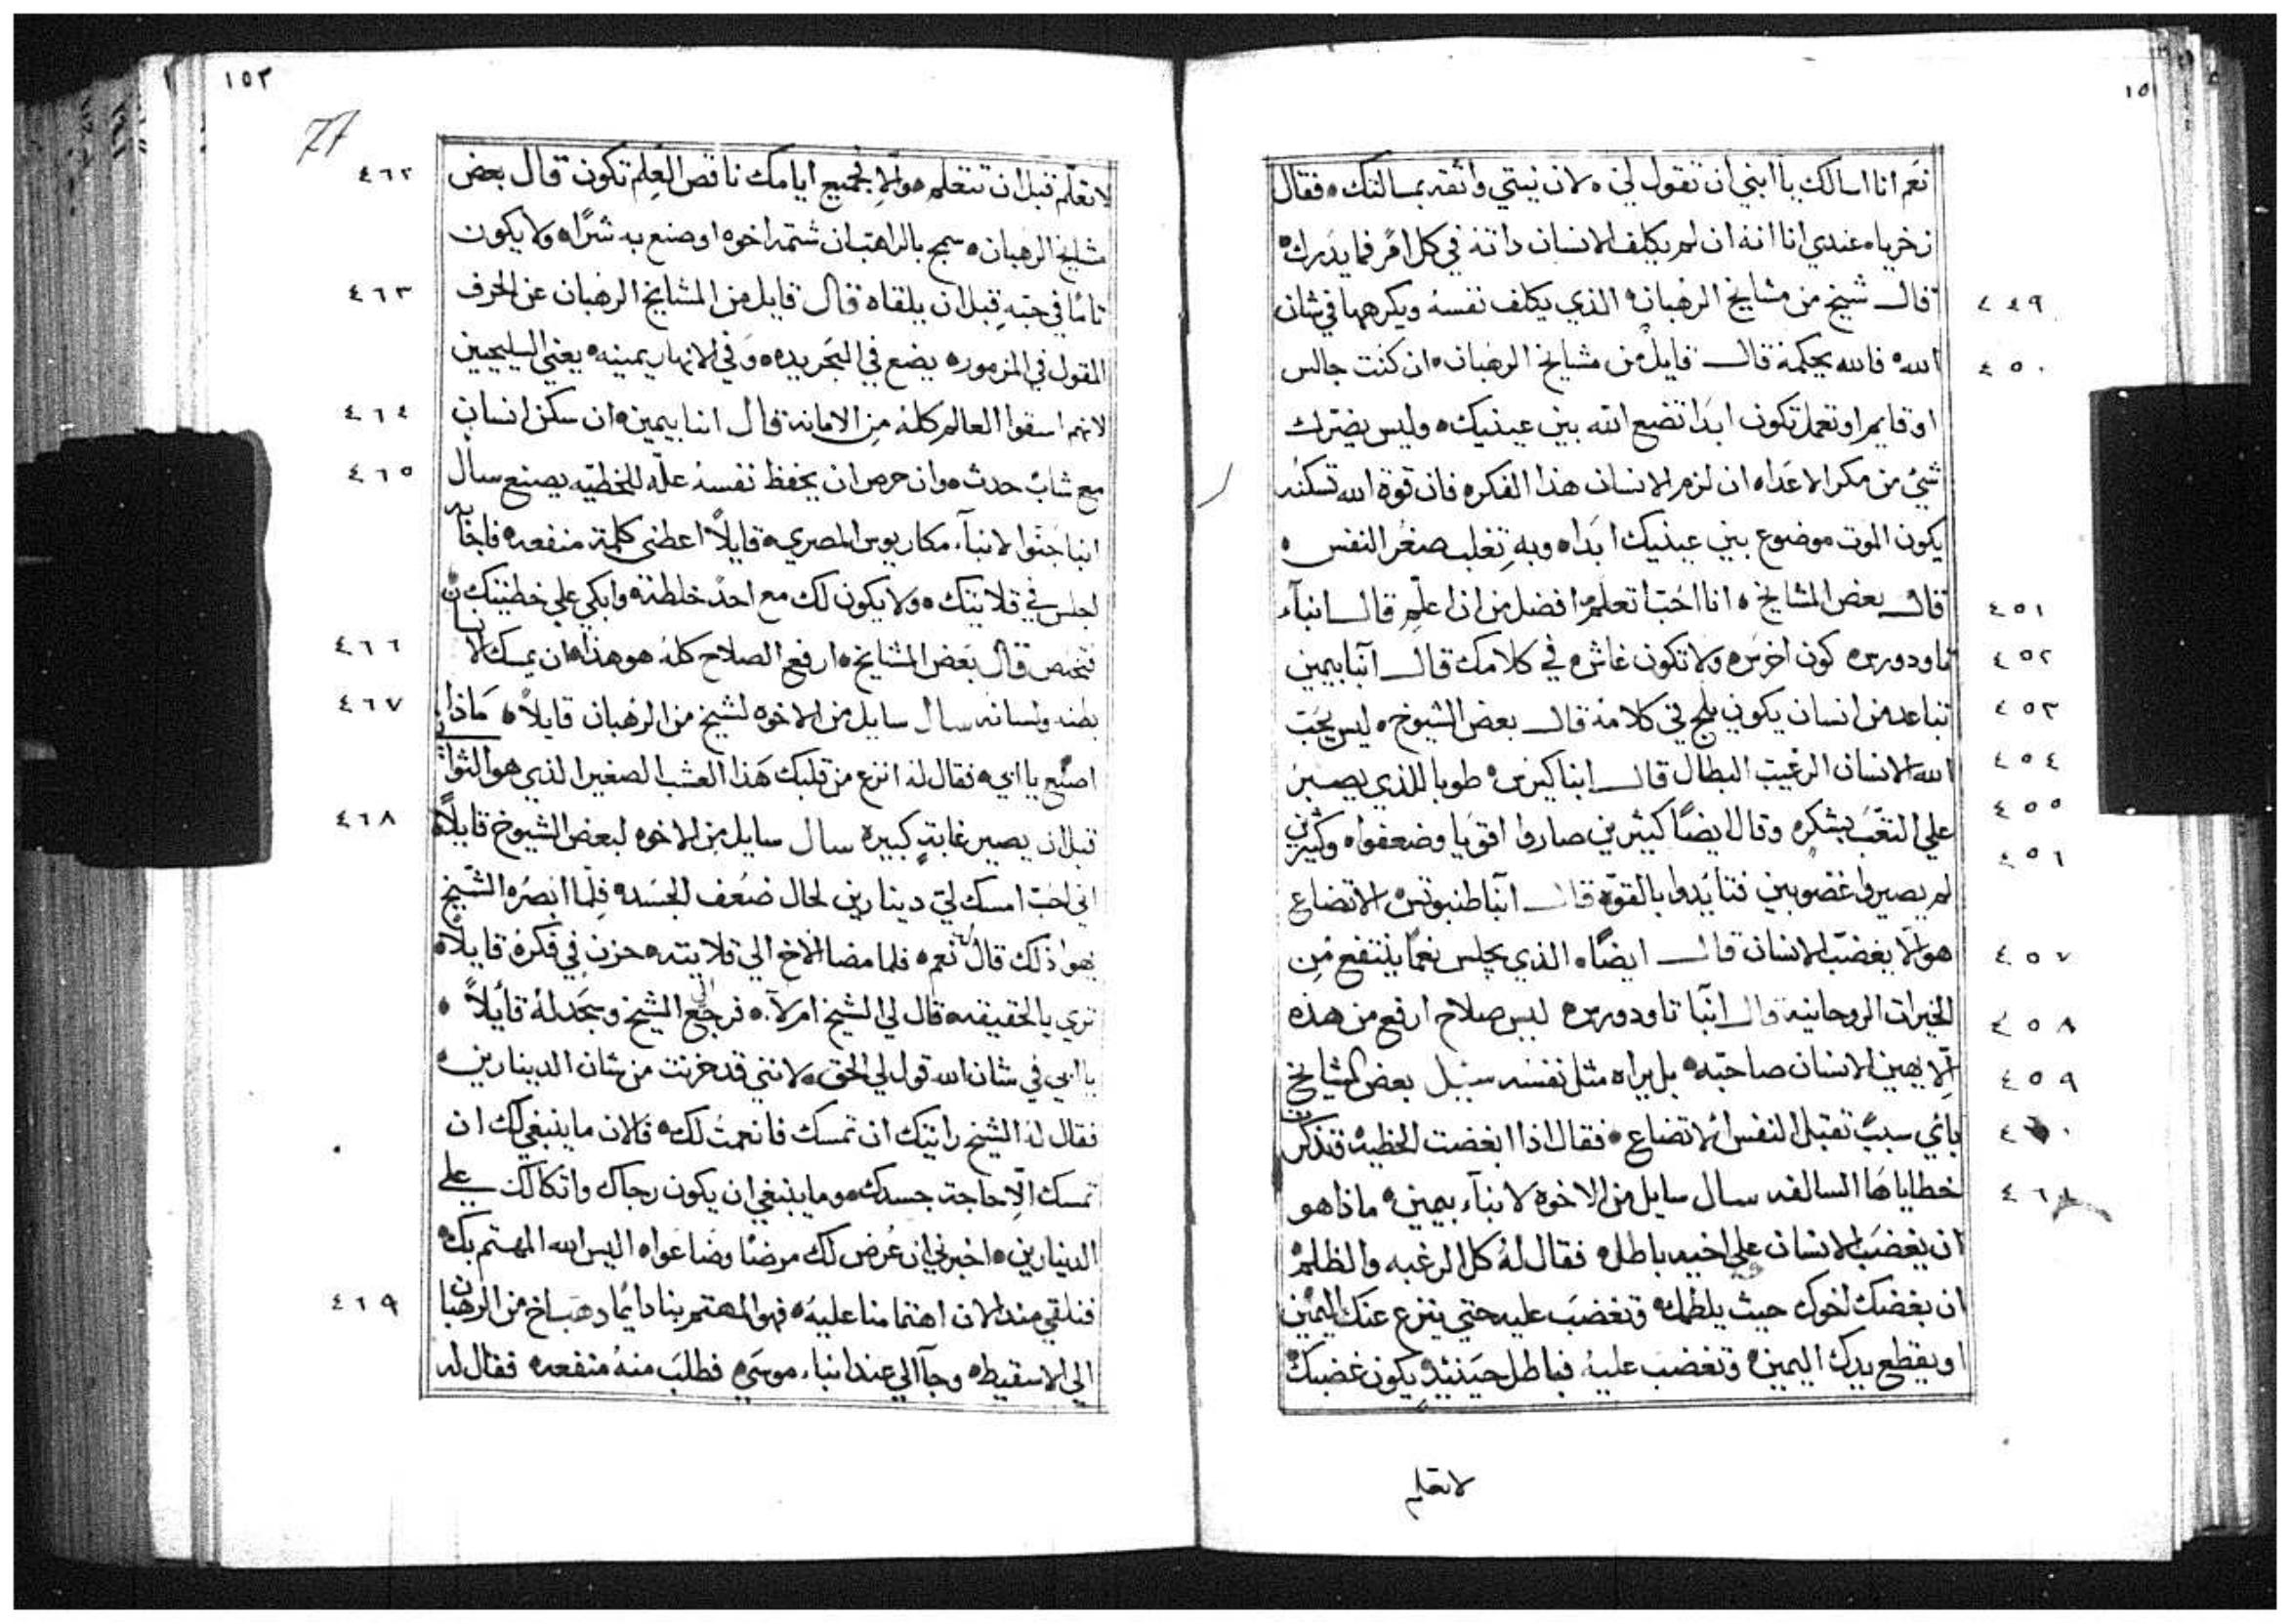 ١٥
نعم انا اسالك يا ابني ان تقول لي، لان نيتي واثقه بمسالتك، فقال
زخريا، عندي انا انه ان لم يكلف الانسان داته في كل امر فما يدرك،
٤٤٩ قال شيخ من مشايخ الرهبان، الذي يكلف نفسه ويكرهها في شان
٤٥٠ الله، فالله يحكمه قال قايل من مشايخ الرهبان، ان كنت جالس
او قايم او تعمل تكون ابدا تضع الله بين عينيك، وليس يضرك
شي من مكر الاعداء ان لزم الانسان هذا الفكره فان قوة الله تسكنه
يكون الموت موضوع بين عينيك ابدا، وبه تغلب صغر النفس،
٤٥١ قال بعض المشايخ، انا احب اتعلم افضل من ان اعلم قال انباء
٤٥٢ تاودورس، كون اخرس، ولا تكون غاش، في كلامك قال انبا بيمين
٤٥٣ تباعد من انسان يكون يلج في كلامه قال بعض الشيوخ، ليس يحب
٤٥٤ الله الانسان الرغيب البطال قال انبا كيرس، طوبا للذي يصبر
٤٥٥ علي التعب بشكر، وقال ايضا كثيرين صاروا اقويا وضعفوا، وكثيرين
٤٥٦ لم يصيروا غضوبين فتايدوا بالقوه قال انبا طنبوتس، الاتضاع
٤٥٧ هو الا يغضب الانسان قال ايضا، الذي يجلس نعما ينتفع من
٤٥٨ الخيرات الروحانية قال انبا تاودورس، ليس صلاح ارفع من هذه
٤٥٩ الا يهين الانسان صاحبه، بل يراه مثل نفسه سيل بعض المشايخ
٤٦٠ باي سبب تقبل النفس الاتضاع، فقال اذا ابغضت الخطيه فتذكرت
٤٦١ خطاياها السالفه سال سايل من الاخوه لانباء بيمين، ماذا هو
ان يغضب الانسان علي اخيه باطل، فقال له كل الرغبه والظلم
ان بغضك اخوك حيث يلطمك، وتغضب عليه حتي ينزع عنك اليمين
او يقطع يدك اليمين، وتغضب عليه، فباطل حينئذ يكون غضبك
لا تعلم
١٥٢
77
٤٦٢ لا تعلم قبل ان تتعلم هولا لجميع ايامك ناقص العلم تكون قال بعض
مشايخ الرهبان، سمج بالراهب ان شتمه اخوه او صنع به شرا، ولا يكون
٤٦٣ تاما في حبه قبل ان يلقاه قال قايل من المشايخ الرهبان عن الحرف
المقول في المزمور، يضع في البحر يده، وفي الانهار يمينه، يعني السليحيين
٤٦٤ لانهم اسقوا العالم كله من الامانه قال انبا بيمين، ان سكن انسان
٤٦٥ مع شاب حدث، وان حرص ان يحفظ نفسه علة للخطيه يصنع سال
انبا لانباء مكاريوس المصري، قايلا اعطني كلمة منفعه، فاجابه
اجلس في قلايتك، ولا يكون لك مع احد خلطة، وابكي علي خطيتك
٤٦٦ فتخلص قال بعض المشايخ، ارفع الصلاح كله هو هذا، ان يمسك الانسان
٤٦٧ بطنه ولسانه سال سايل من الاخوه لشيخ من الرهبان قايلا، ماذا
اصنع يا ابي، فقال له انزع من قلبك هذا العشب الصغير الذي هو التوان
٤٦٨ قبل ان يصير غابة كبيره سال سايل من الاخوه لبعض الشيوخ قايلا،
اني احب امسك لي دينارين لحال ضعف الجسد، فلما ابصره الشيخ
يهوا ذلك قال له نعم، فلما مضا الاخ الي قلايته، حزن في فكره قايلا،
تري بالحقيقه قال لي الشيخ ام لا، فرجع الي الشيخ وسجد له قائلا،
يا ابي في شان الله قول لي الحق، لانني قد حزنت من شان الدينارين،
فقال له الشيخ رايتك ان تمسك فانعمت لك، فالان ما ينبغي لك ان
تمسك الا حاجة جسدك، وما ينبغي ان يكون رجاك واتكالك علي
الدينارين، اخبرني ان عرض لك مرضا وضاعوا، اليس الله المهتم بك،
٤٦٩ فنلقي منذ الان اهتمامنا عليه، فهو المهتم بنا دايما دهب اخ من الرهبان
الي الاسقيط، وجا الي عند انباء موسي، فطلب منه منفعه، فقال له